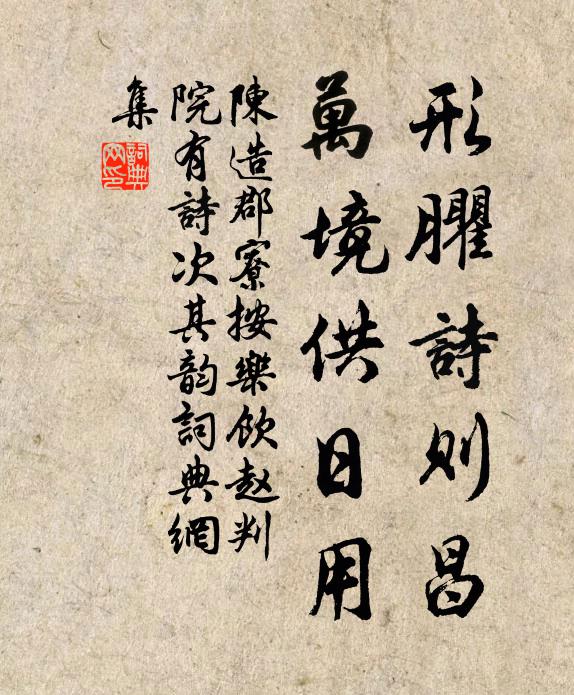 形臞詩則昌
萬境供日用
陳造郡寮按樂飲赵判
院有詩次其韵詞典網
集
詞典網印